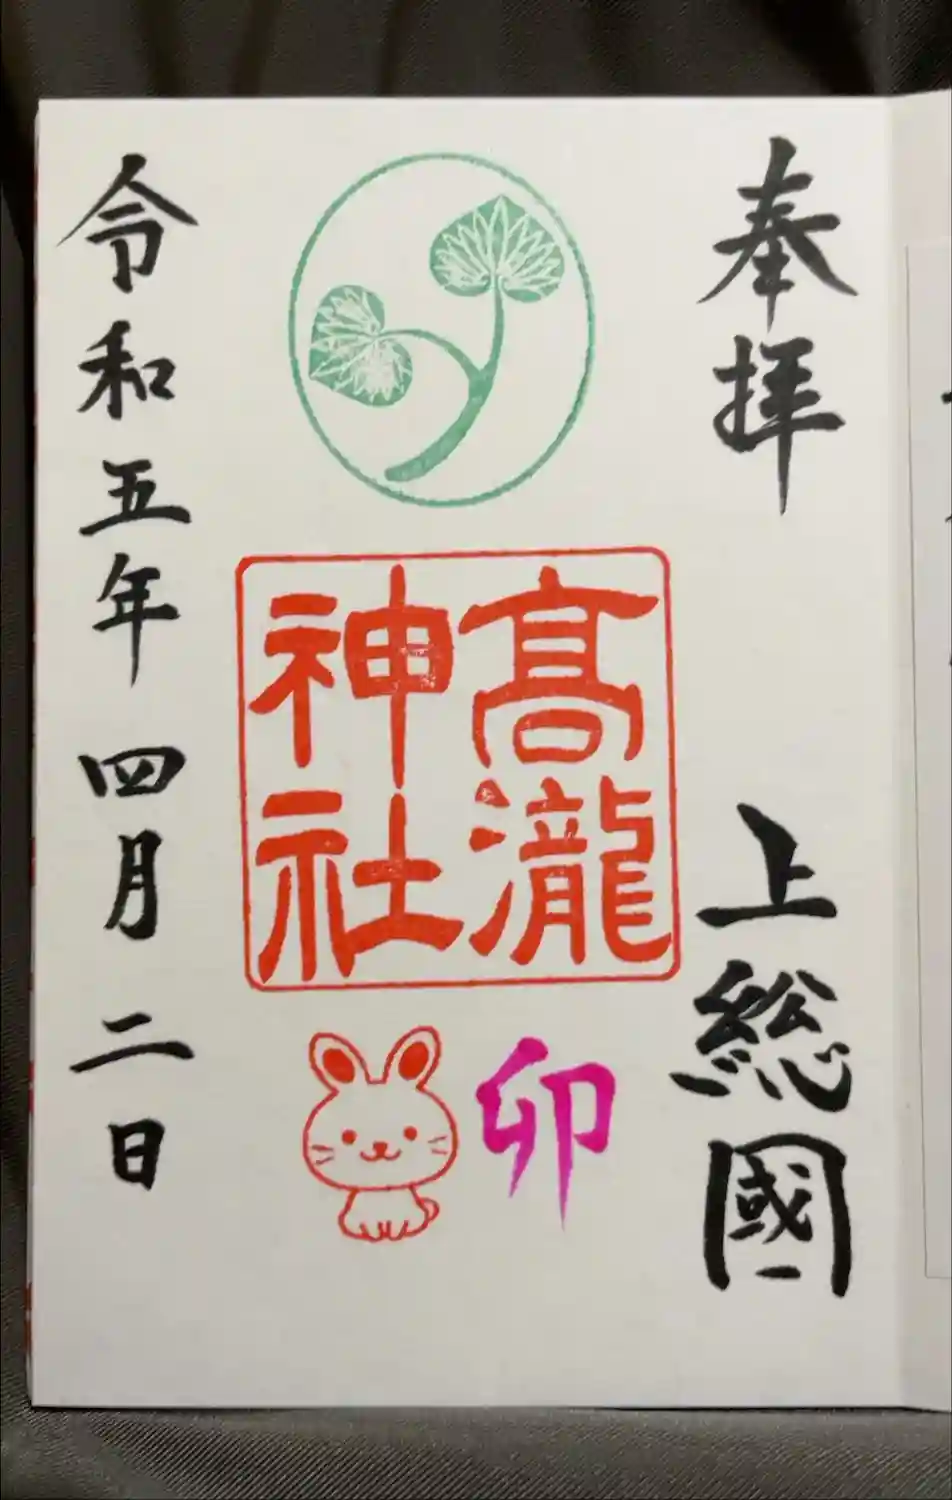 奉拝
上総國
髙瀧
神社
卯
令和五年四月二日